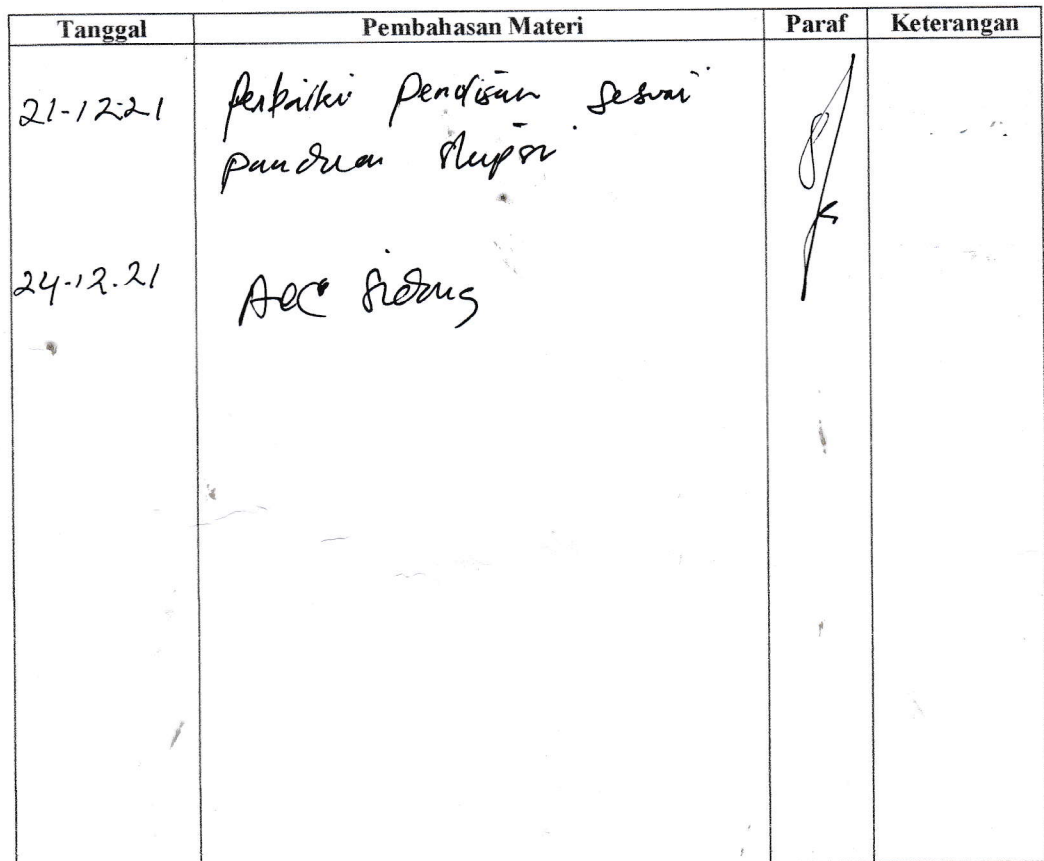 Tanggal Pembahasan Materi Paraf Keterangan
21-12-21 Perbaiki Penulisan Sesuai
panduan skripsi
24-12.21 Acc Sidang